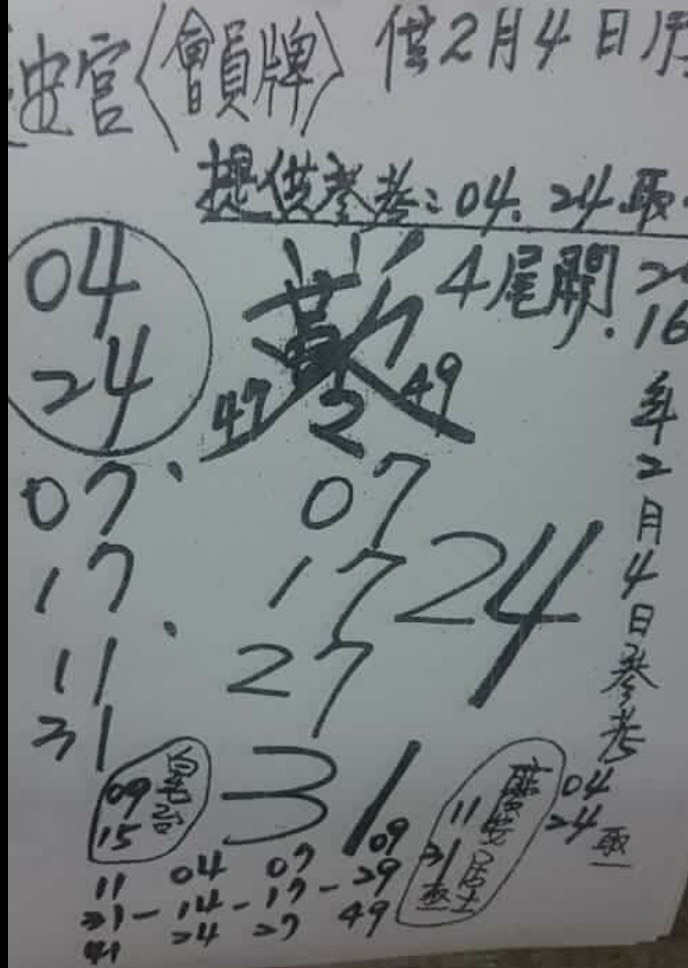 宮〈會員牌〉 供2月4日
提供參考:04. 24
4尾開
16
04
24
47 2 49
07
17
11
31
07
17
27
24
31
年2月4日參考
04
24
09
15
11
31
居士
11 04 07 09
31-14-17-29
41 24 27 49